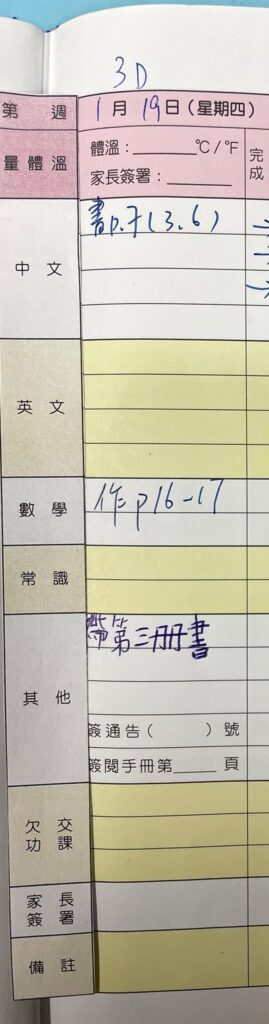 3D
第 週 1月19日(星期四)
量體溫 體溫：______℃/℉
家長簽署：______
完成
中文 書p.7(3.6)
英文
數學 作p16-17
常識
其他 帶第三冊書
簽通告( )號
簽閱手冊第____頁
欠交功課
家長簽署
備註